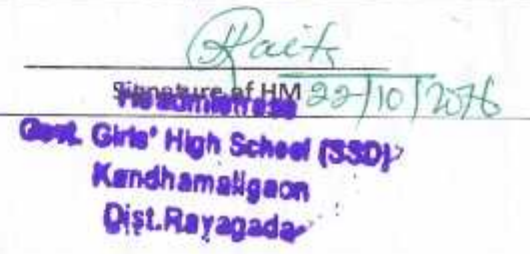 Signature of HM 22/10/2016
Headmistress
Govt. Girls' High School (SSD)
Kandhamaligaon
Dist.Rayagada